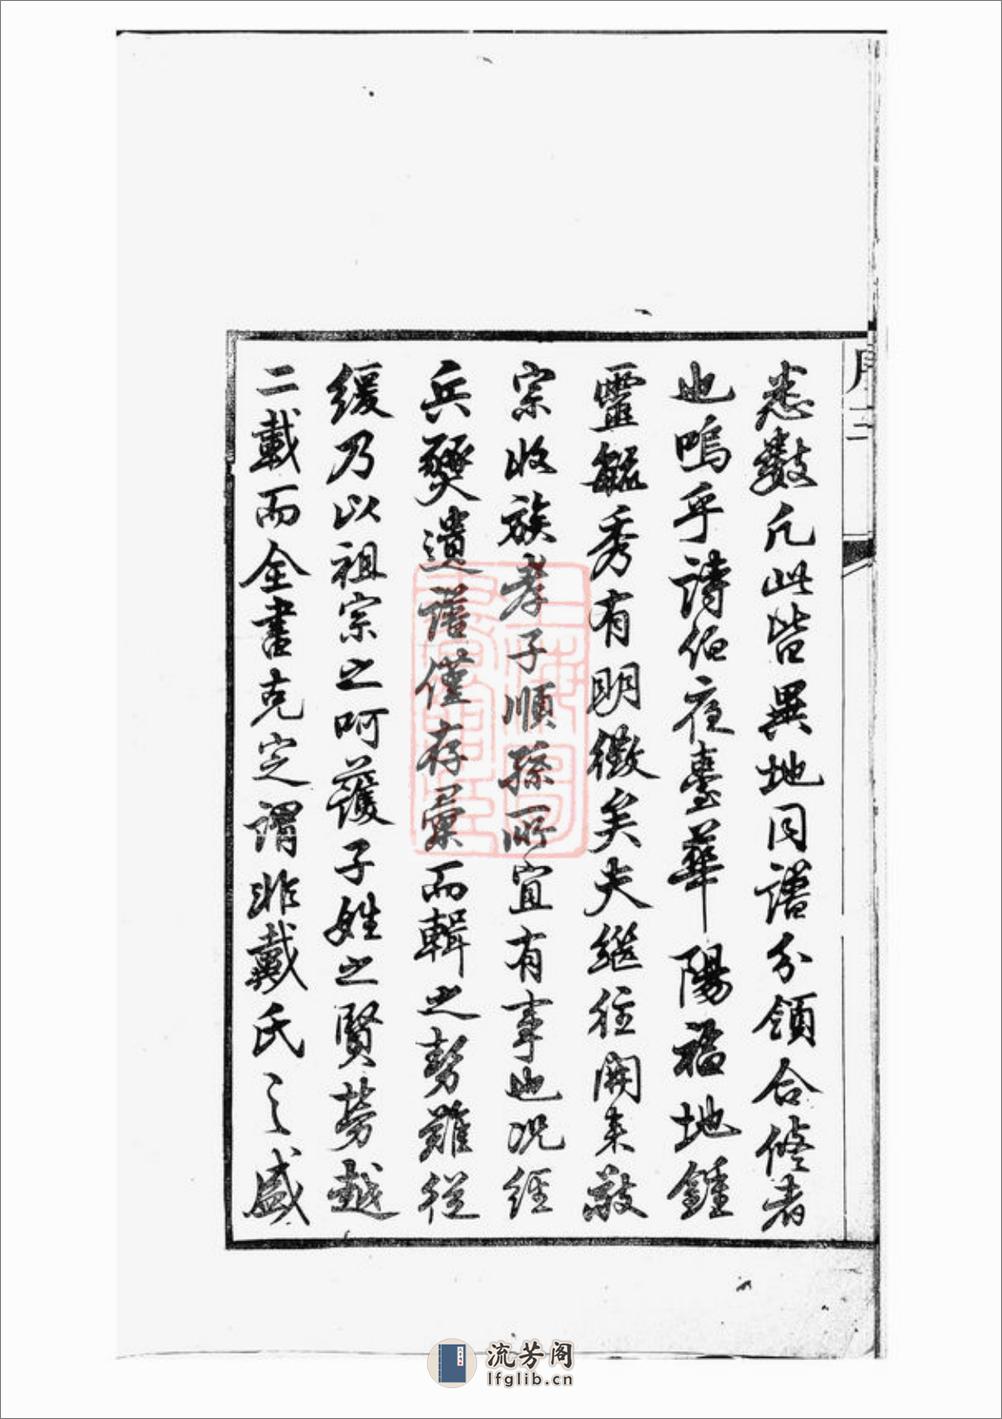 悉數凡此皆異地同譜分領合修者
也嗚乎詩伯夜臺華陽福地鍾
靈毓秀有明徵矣夫繼往開來敬
宗收族孝子順孫所宜有事也況經
兵燹遺譜僅存彙而輯之勢難從
緩乃以祖宗之呵護子姓之賢勞越
二載而全書克定謂非戴氏之盛
流芳阁
lfglib.cn